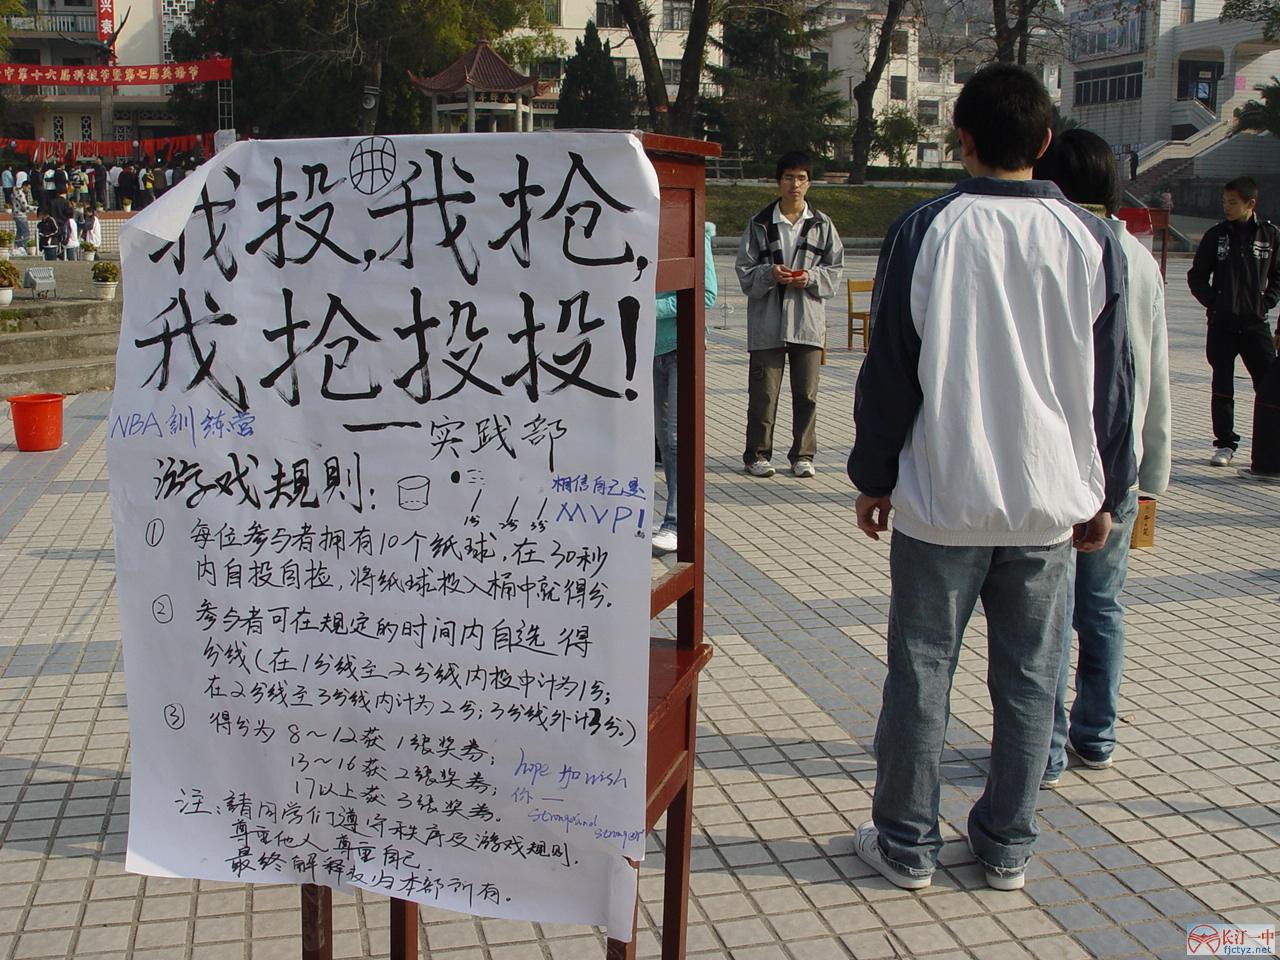 兴衰
中第十六届科技节暨第七届英语节
我投,我抢,
我抢投投!
NBA訓练营
——实践部
游戏規則:
1分 2分 3分
相信自己是
MVP!
① 每位参与者拥有10个纸球,在30秒
内自投自捡,将纸球投入桶中就得分。
② 参与者可在规定的时间内自选得
分线(在1分线至2分线内投中计为1分;
在2分线至3分线内计为2分;3分线外计3分。)
③ 得分为8~12获1张奖券;
13~16获2张奖券;
17以上获3张奖券。
hope 加 wish
你—
strong and
stronger
注:請同学们遵守秩序及游戏规则,
尊重他人,尊重自己.
最终解释权归本部所有。
长汀一中
fjctyz.net